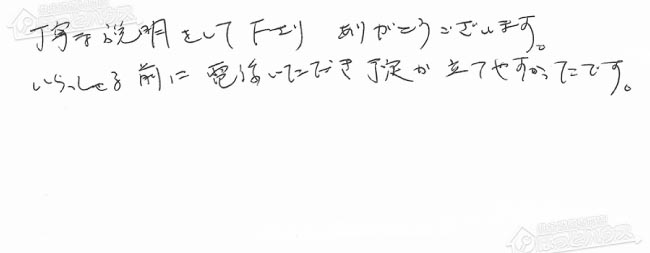 丁寧な説明をして下さり ありがとうございます。
いらっしゃる前に電話いただき予定が立てやすかったです。